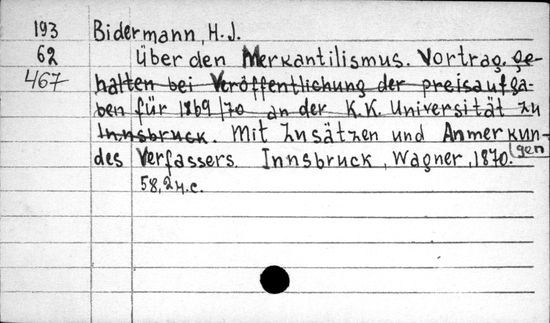 193 Bidermann, H.J.
62 Über den Merkantilismus. Vortrag, ge-
467 halten bei Veröffentlichung der preisaufga-
ben für 1869/70 an der K.K. Universität zu
Innsbruck. Mit Zusätzen und Anmerkun-
gen
des Verfassers. Innsbruck, Wagner, 1870.
58, 2 н.с.